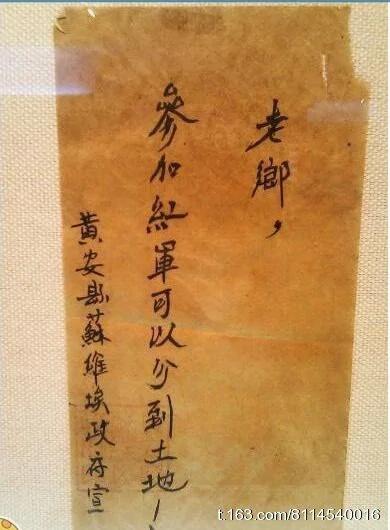 老鄉，
參加紅軍可以分到土地！
黃安縣蘇維埃政府宣
t.163.com/8114540016